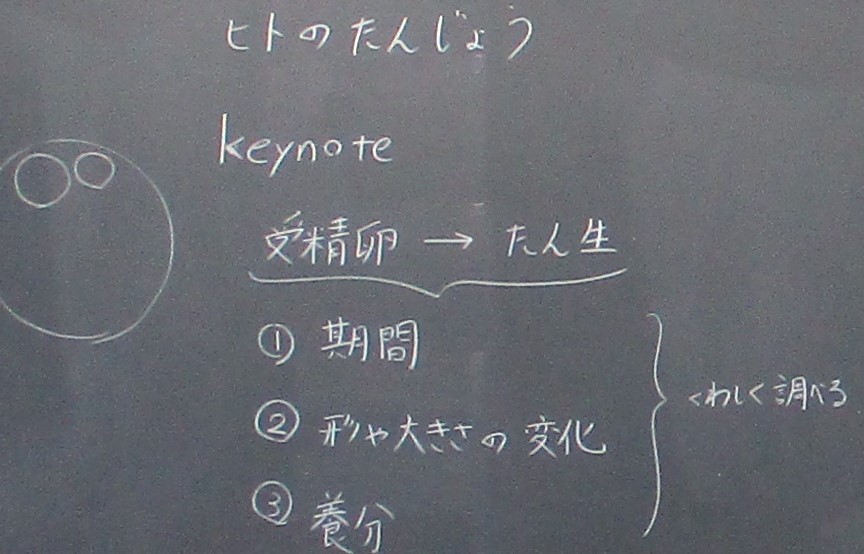 ヒトのたんじょう
keynote
受精卵 → たん生
① 期間
② 形や大きさの変化
③ 養分
くわしく調べる